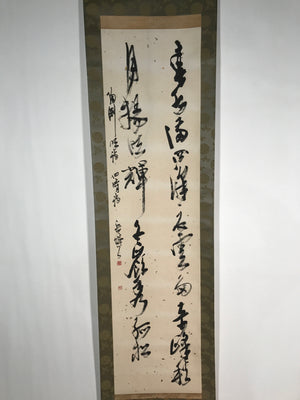 春水満四澤夏雲多奇峰秋
月揚明輝冬嶺秀孤松